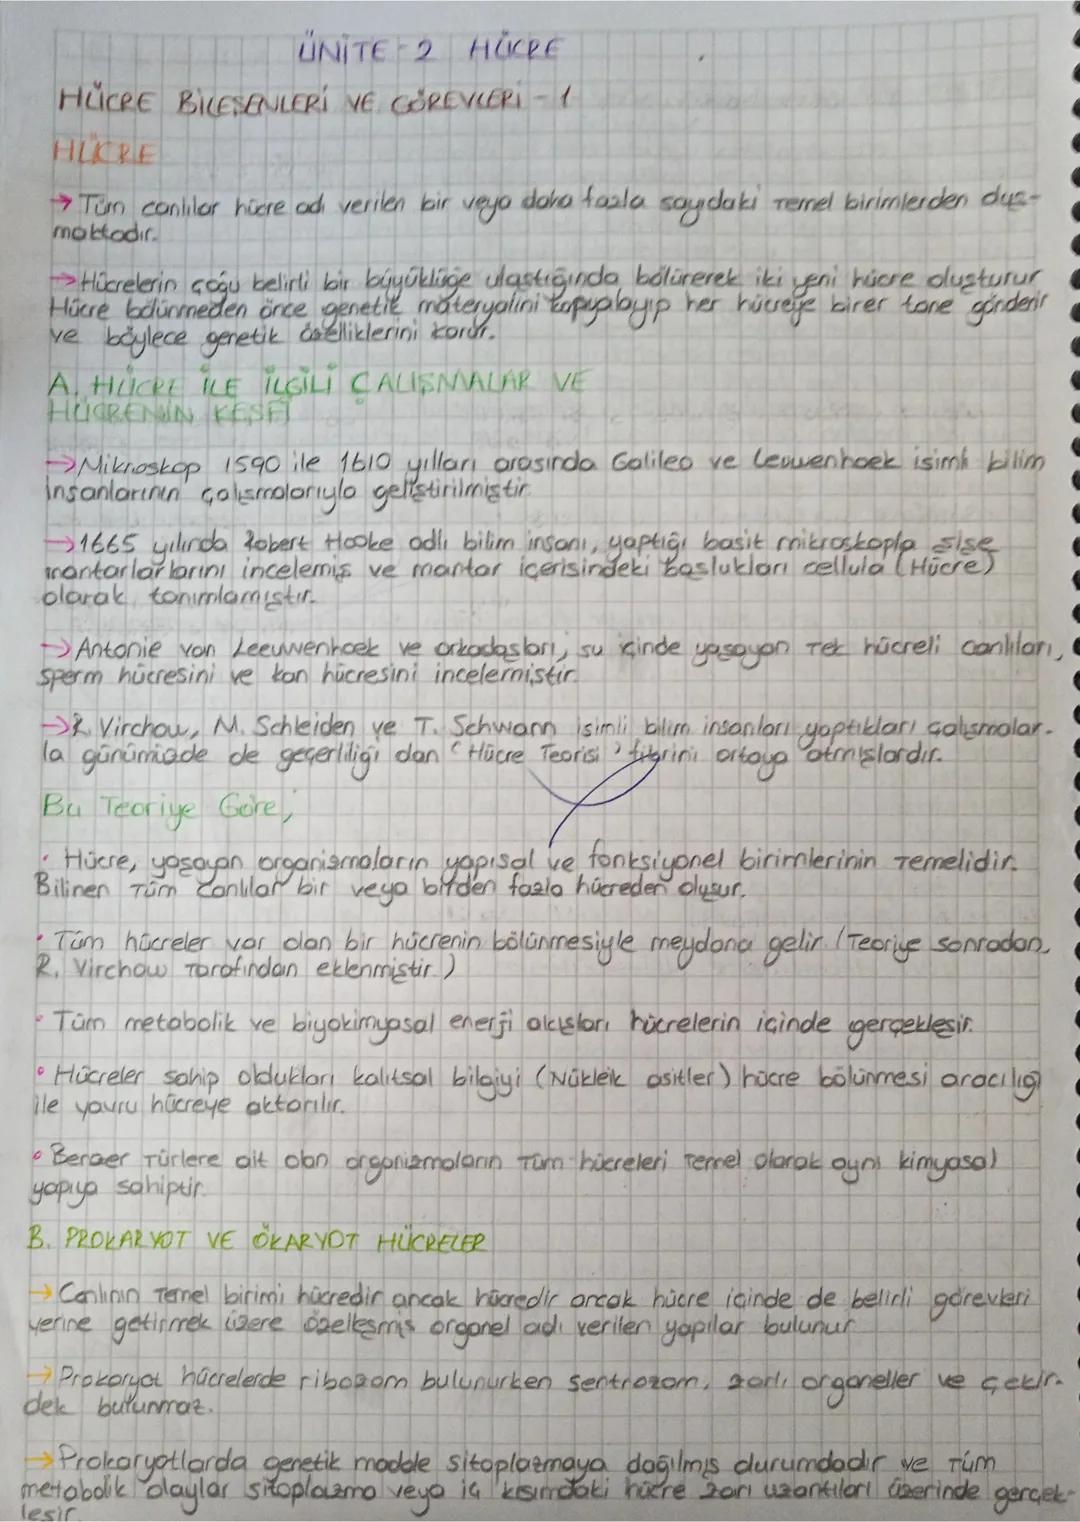 ÜNİTE-2 HÜCRE
HÜCRE BİLEŞENLERİ VE GÖREVLERİ - 1
HÜCRE
→ Tüm canlılar hücre adı verilen bir veya daha fazla sayıdaki temel birimlerden oluş-
maktadır.
→ Hücrelerin çoğu belirli bir büyüklüğe ulaştığında bölünerek iki yeni hücre oluşturur
Hücre bölünmeden önce genetik materyalini kopyalayıp her hücreye birer tane gönderir
ve böylece genetik özelliklerini korur.
A. HÜCRE İLE İLGİLİ ÇALIŞMALAR VE
HÜCRENİN KEŞFİ
→ Mikroskop 1590 ile 1610 yılları arasında Galileo ve Leuwenhoek isimli bilim
insanlarının çalışmalarıyla geliştirilmiştir
→ 1665 yılında Robert Hooke adlı bilim insanı, yaptığı basit mikroskopla şişe
mantarlarlarını incelemiş ve mantar içerisindeki boşlukları cellula (Hücre)
olarak tanımlamıştır.
→ Antonie van Leeuwenhoek ve arkadaşları, su içinde yaşayan tek hücreli canlıları,
sperm hücresini ve kan hücresini incelemiştir.
→ R. Virchow, M. Schleiden ve T. Schwann isimli bilim insanları yaptıkları çalışmalar-
la günümüzde de geçerliliği olan "Hücre Teorisi" fikrini ortaya atmışlardır.
Bu Teoriye Göre;
• Hücre, yaşayan organizmaların yapısal ve fonksiyonel birimlerinin temelidir.
Bilinen tüm canlılar bir veya birden fazla hücreden oluşur.
• Tüm hücreler var olan bir hücrenin bölünmesiyle meydana gelir (Teoriye sonradan,
R. Virchow tarafından eklenmiştir.)
• Tüm metabolik ve biyokimyasal enerji akışları hücrelerin içinde gerçekleşir.
• Hücreler sahip oldukları kalıtsal bilgiyi (Nükleik asitler) hücre bölünmesi aracılığı
ile yavru hücreye aktarılır.
• Benzer türlere ait olan organizmaların tüm hücreleri temel olarak aynı kimyasal
yapıya sahiptir.
B. PROKARYOT VE ÖKARYOT HÜCRELER
→ Canlının temel birimi hücredir ancak hücredir ancak hücre içinde de belirli görevleri
yerine getirmek üzere özelleşmiş organel adı verilen yapılar bulunur
→ Prokaryot hücrelerde ribozom bulunurken sentrozom, zarlı organeller ve çekir-
dek bulunmaz.
→ Prokaryotlarda genetik madde sitoplazmaya dağılmış durumdadır ve tüm
metabolik olaylar sitoplazma veya iç kısımdaki hücre zarı uzantıları üzerinde gerçek-
leşir.